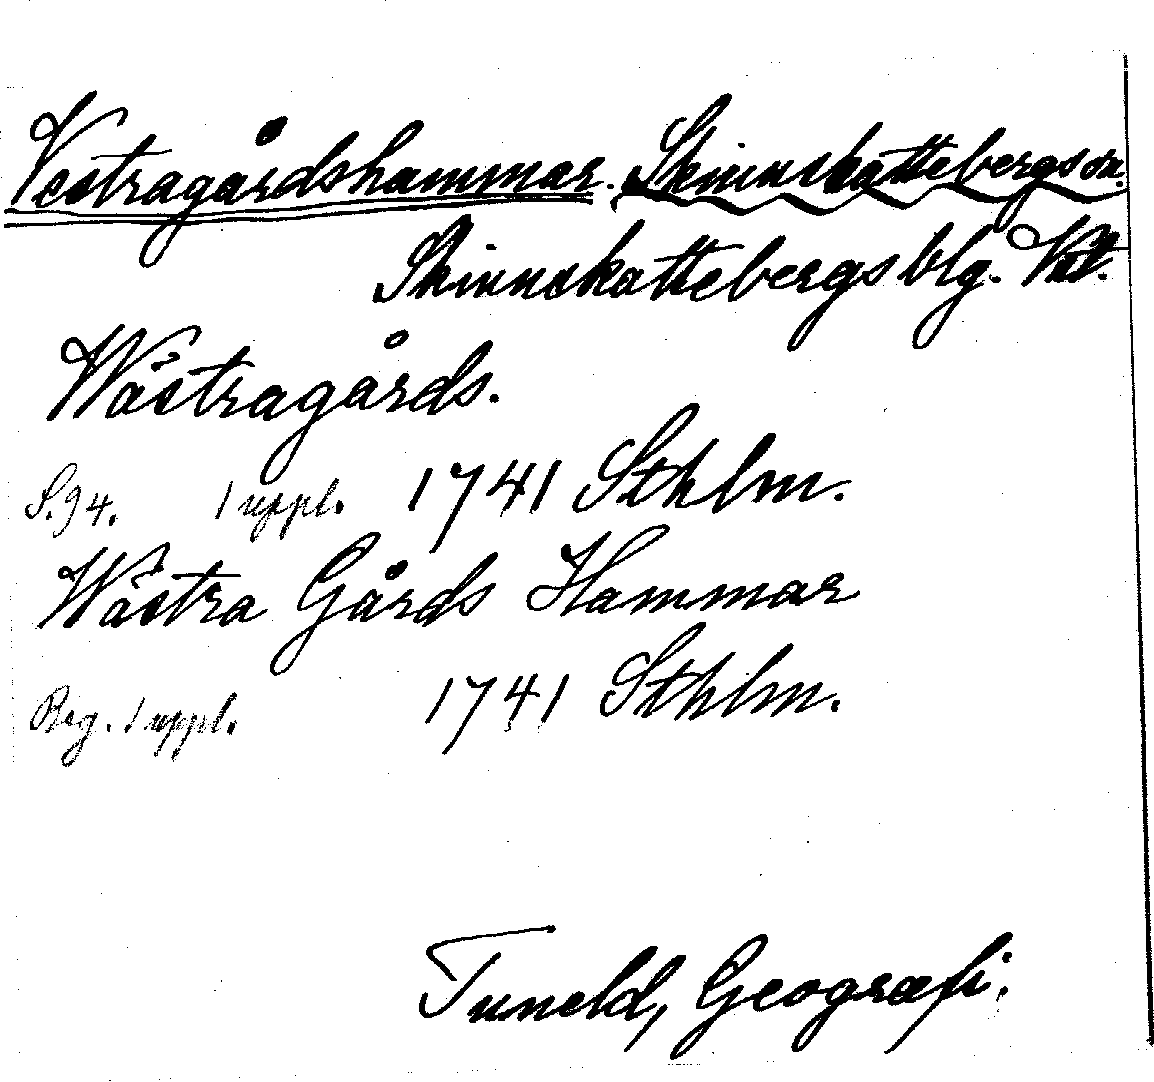 Vestragårdshammar. Skinnskattebergs sn.
Skinnskattebergs blg. Vstl.
Wästragårds.
S. 94. 1 uppl. 1741 Sthlm.
Wästra Gårds Hammar
Reg. 1 uppl. 1741 Sthlm.
Tuneld, Geografi.